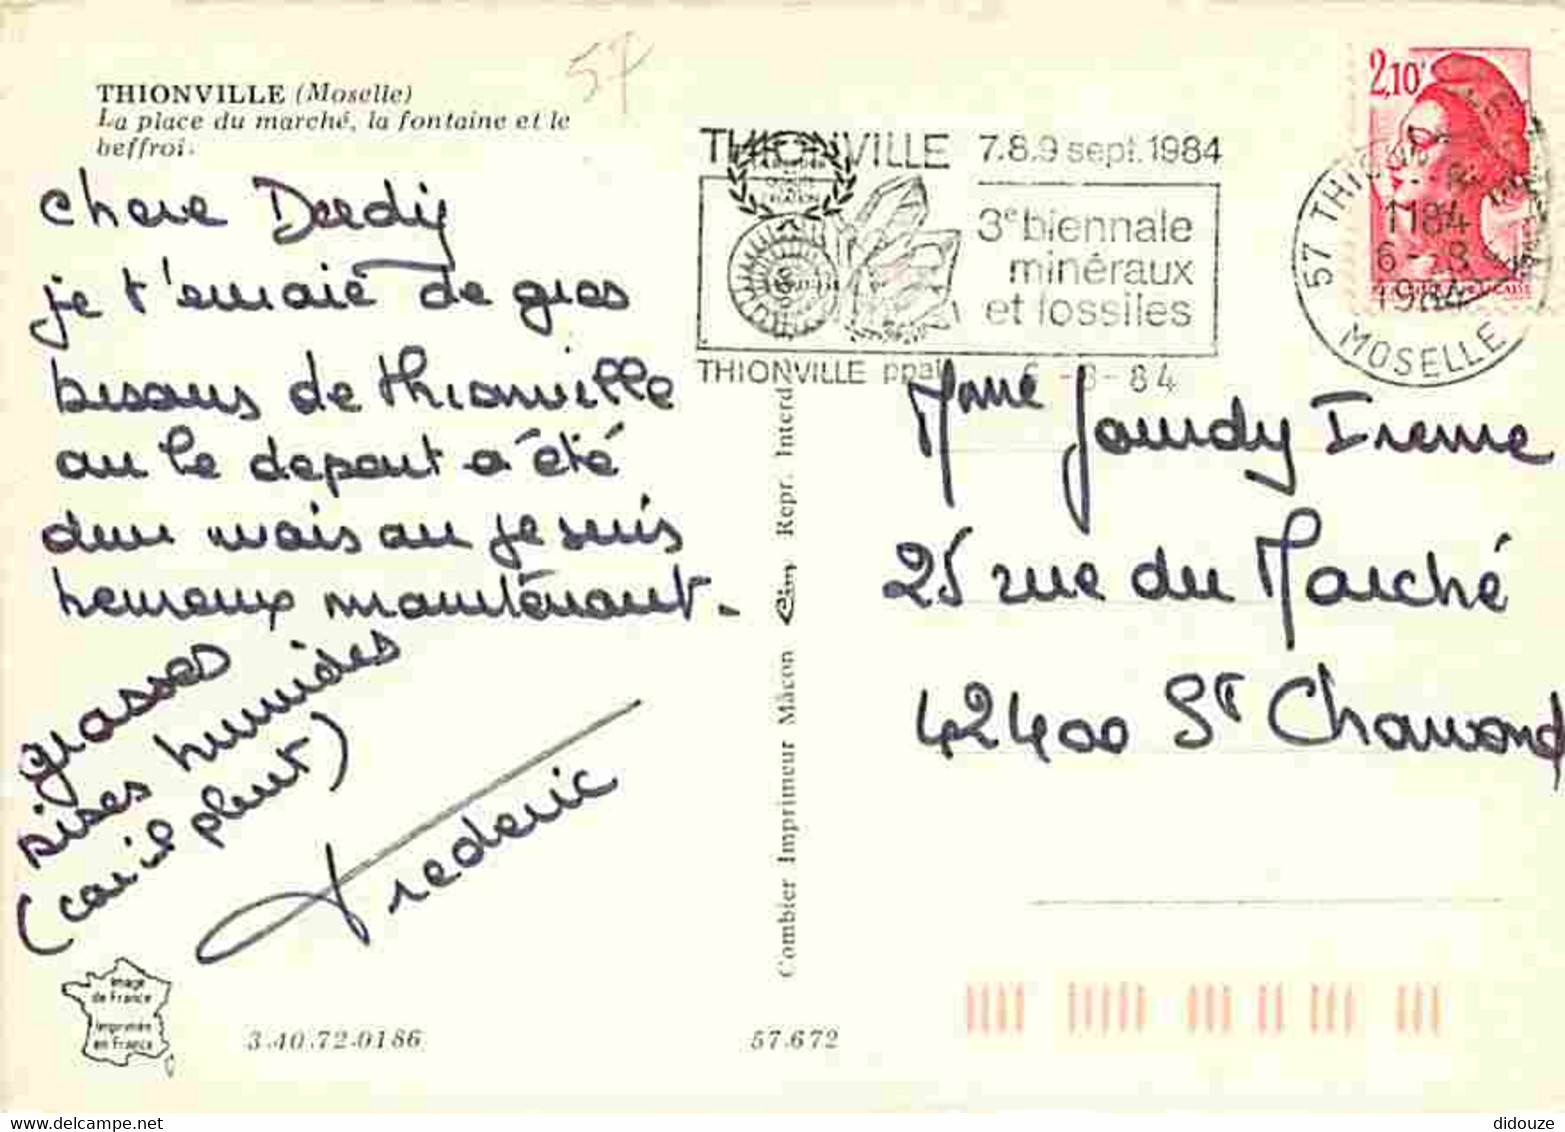 57
THIONVILLE (Moselle)
La place du marché, la fontaine et le
beffroi.
chere Derdiy
je t'emaie de gros
bisous de thionville
ou le depart a été
dur mais ou je suis
heureux maintenant.
grasses
bises humides
(car il pleut)
Frederic
Image
de France
Imprimée
en France
3.40.72.0186
57.672
Combier Imprimeur Mâcon Cim Repr. Interd
THIONVILLE 7.8.9 sept. 1984
3e biennale
minéraux
et fossiles
THIONVILLE ppal 6 -8-84
2,10
57 THIONVILLE
1184
6 -8
1984
MOSELLE
Mme Jourdy Irene
25 rue du Marché
42400 St Chamond
delcampe.net
didouze